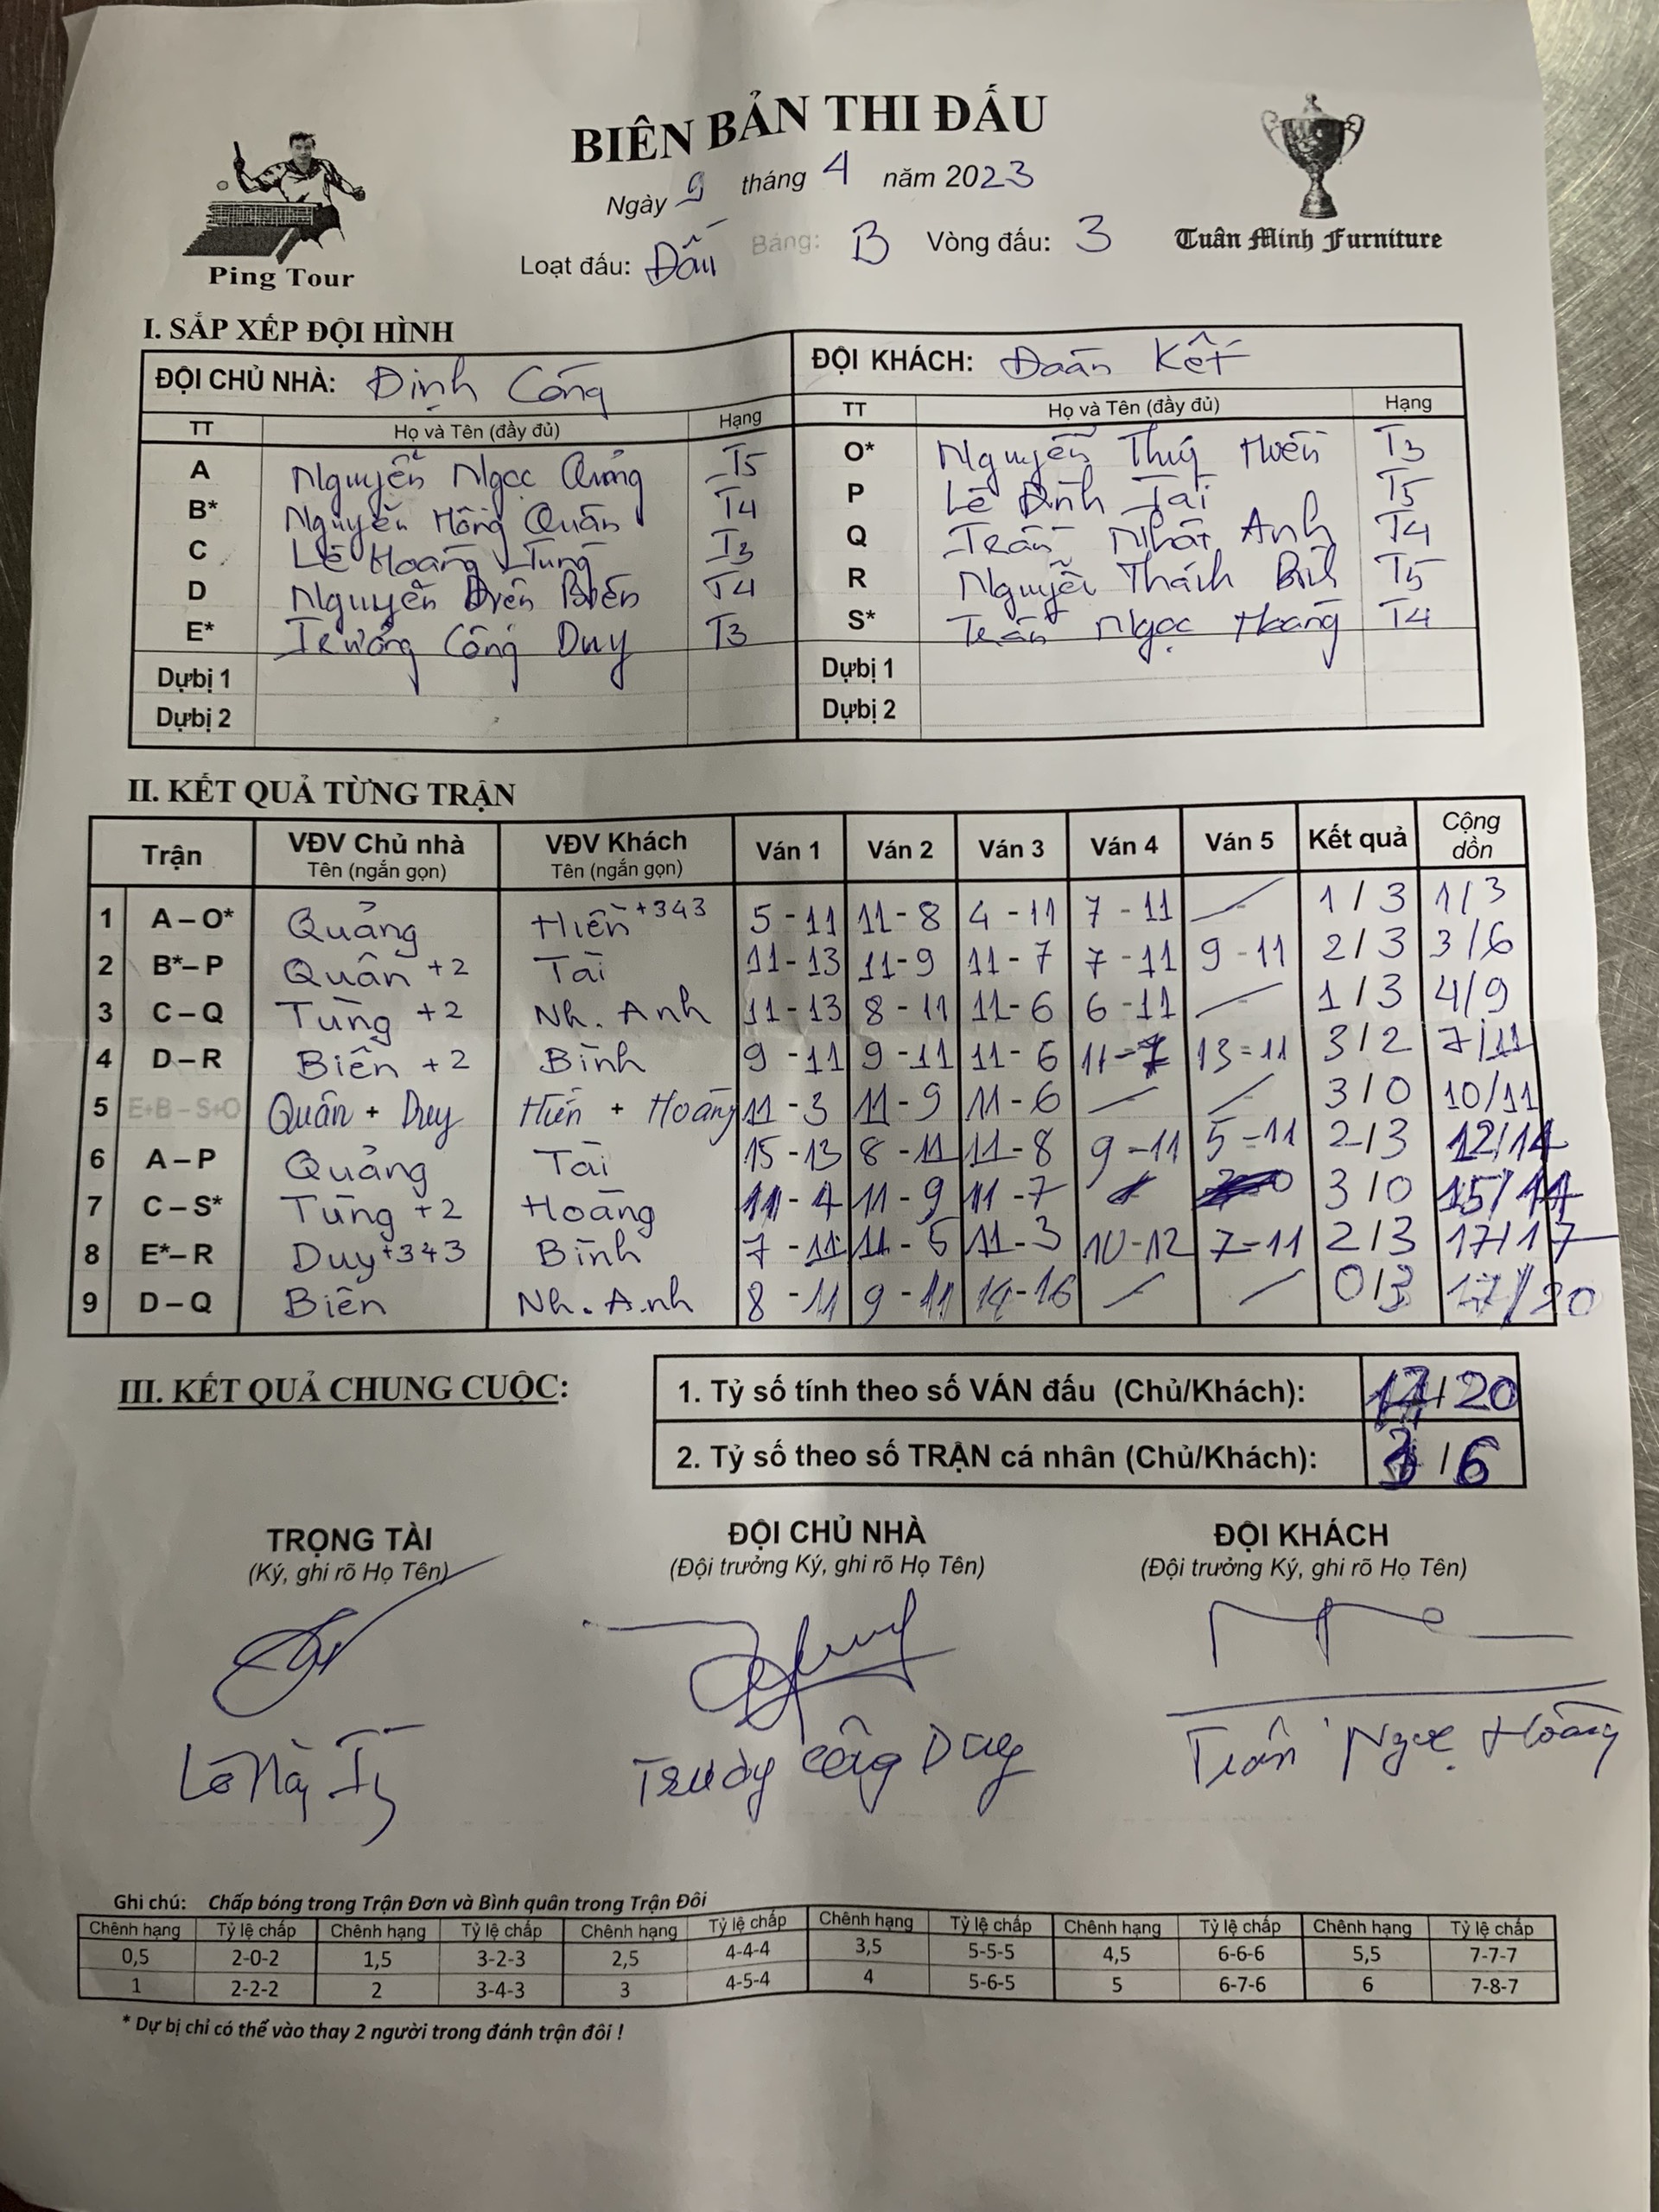 BIÊN BẢN THI ĐẤU
Ngày 9 tháng 4 năm 2023
Loạt đấu: Đấu Bảng: B Vòng đấu: 3
Ping Tour
Tuấn Minh Furniture
I. SẮP XẾP ĐỘI HÌNH
ĐỘI CHỦ NHÀ: Định Công
TT Họ và Tên (đầy đủ) Hạng
A Nguyễn Ngọc Quảng T5
B* Nguyễn Hồng Quân T4
C Lê Hoàng Tùng T3
D Nguyễn Điện Biên T4
E* Trương Công Duy T3
Dự bị 1
Dự bị 2
ĐỘI KHÁCH: Đoàn Kết
TT Họ và Tên (đầy đủ) Hạng
O* Nguyễn Thúy Hiền T3
P Lê Đình Tài T5
Q Trần Nhật Anh T4
R Nguyễn Thách Bình T5
S* Trần Ngọc Hoàng T4
Dự bị 1
Dự bị 2
II. KẾT QUẢ TỪNG TRẬN
Trận VĐV Chủ nhà Tên (ngắn gọn) VĐV Khách Tên (ngắn gọn) Ván 1 Ván 2 Ván 3 Ván 4 Ván 5 Kết quả Cộng dồn
1 A – O* Quảng Hiền +343 5 - 11 11 - 8 4 - 11 7 - 11 — 1 / 3 1/3
2 B*– P Quân +2 Tài 11 - 13 11 - 9 11 - 7 7 - 11 9 - 11 2 / 3 3/6
3 C – Q Tùng +2 Nh. Anh 11 - 13 8 - 11 11 - 6 6 - 11 — 1 / 3 4/9
4 D – R Biên +2 Bình 9 - 11 9 - 11 11 - 6 11 - 7 13 - 11 3 / 2 7/11
5 E+B – S+O Quân + Duy Hiền + Hoàng 11 - 3 11 - 9 11 - 6 — — 3 / 0 10/11
6 A – P Quảng Tài 15 - 13 8 - 11 11 - 8 9 - 11 5 - 11 2 / 3 12/14
7 C – S* Tùng +2 Hoàng 11 - 4 11 - 9 11 - 7 3 / 0 15/14
8 E*– R Duy +343 Bình 7 - 11 11 - 5 11 - 3 10 - 12 7 - 11 2 / 3 17/17
9 D – Q Biên Nh. Anh 8 - 11 9 - 11 14 - 16 — — 0 / 3 17/20
III. KẾT QUẢ CHUNG CUỘC:
1. Tỷ số tính theo số VÁN đấu (Chủ/Khách): 17/20
2. Tỷ số theo số TRẬN cá nhân (Chủ/Khách): 3 / 6
TRỌNG TÀI ĐỘI CHỦ NHÀ ĐỘI KHÁCH
(Ký, ghi rõ Họ Tên) (Đội trưởng Ký, ghi rõ Họ Tên) (Đội trưởng Ký, ghi rõ Họ Tên)
Trương Công Duy Trần Ngọc Hoàng
Ghi chú: Chấp bóng trong Trận Đơn và Bình quân trong Trận Đôi
Chênh hạng Tỷ lệ chấp Chênh hạng Tỷ lệ chấp Chênh hạng Tỷ lệ chấp Chênh hạng Tỷ lệ chấp Chênh hạng Tỷ lệ chấp Chênh hạng Tỷ lệ chấp
0,5 2-0-2 1,5 3-2-3 2,5 4-4-4 3,5 5-5-5 4,5 6-6-6 5,5 7-7-7
1 2-2-2 2 3-4-3 3 4-5-4 4 5-6-5 5 6-7-6 6 7-8-7
* Dự bị chỉ có thể vào thay 2 người trong đánh trận đôi !